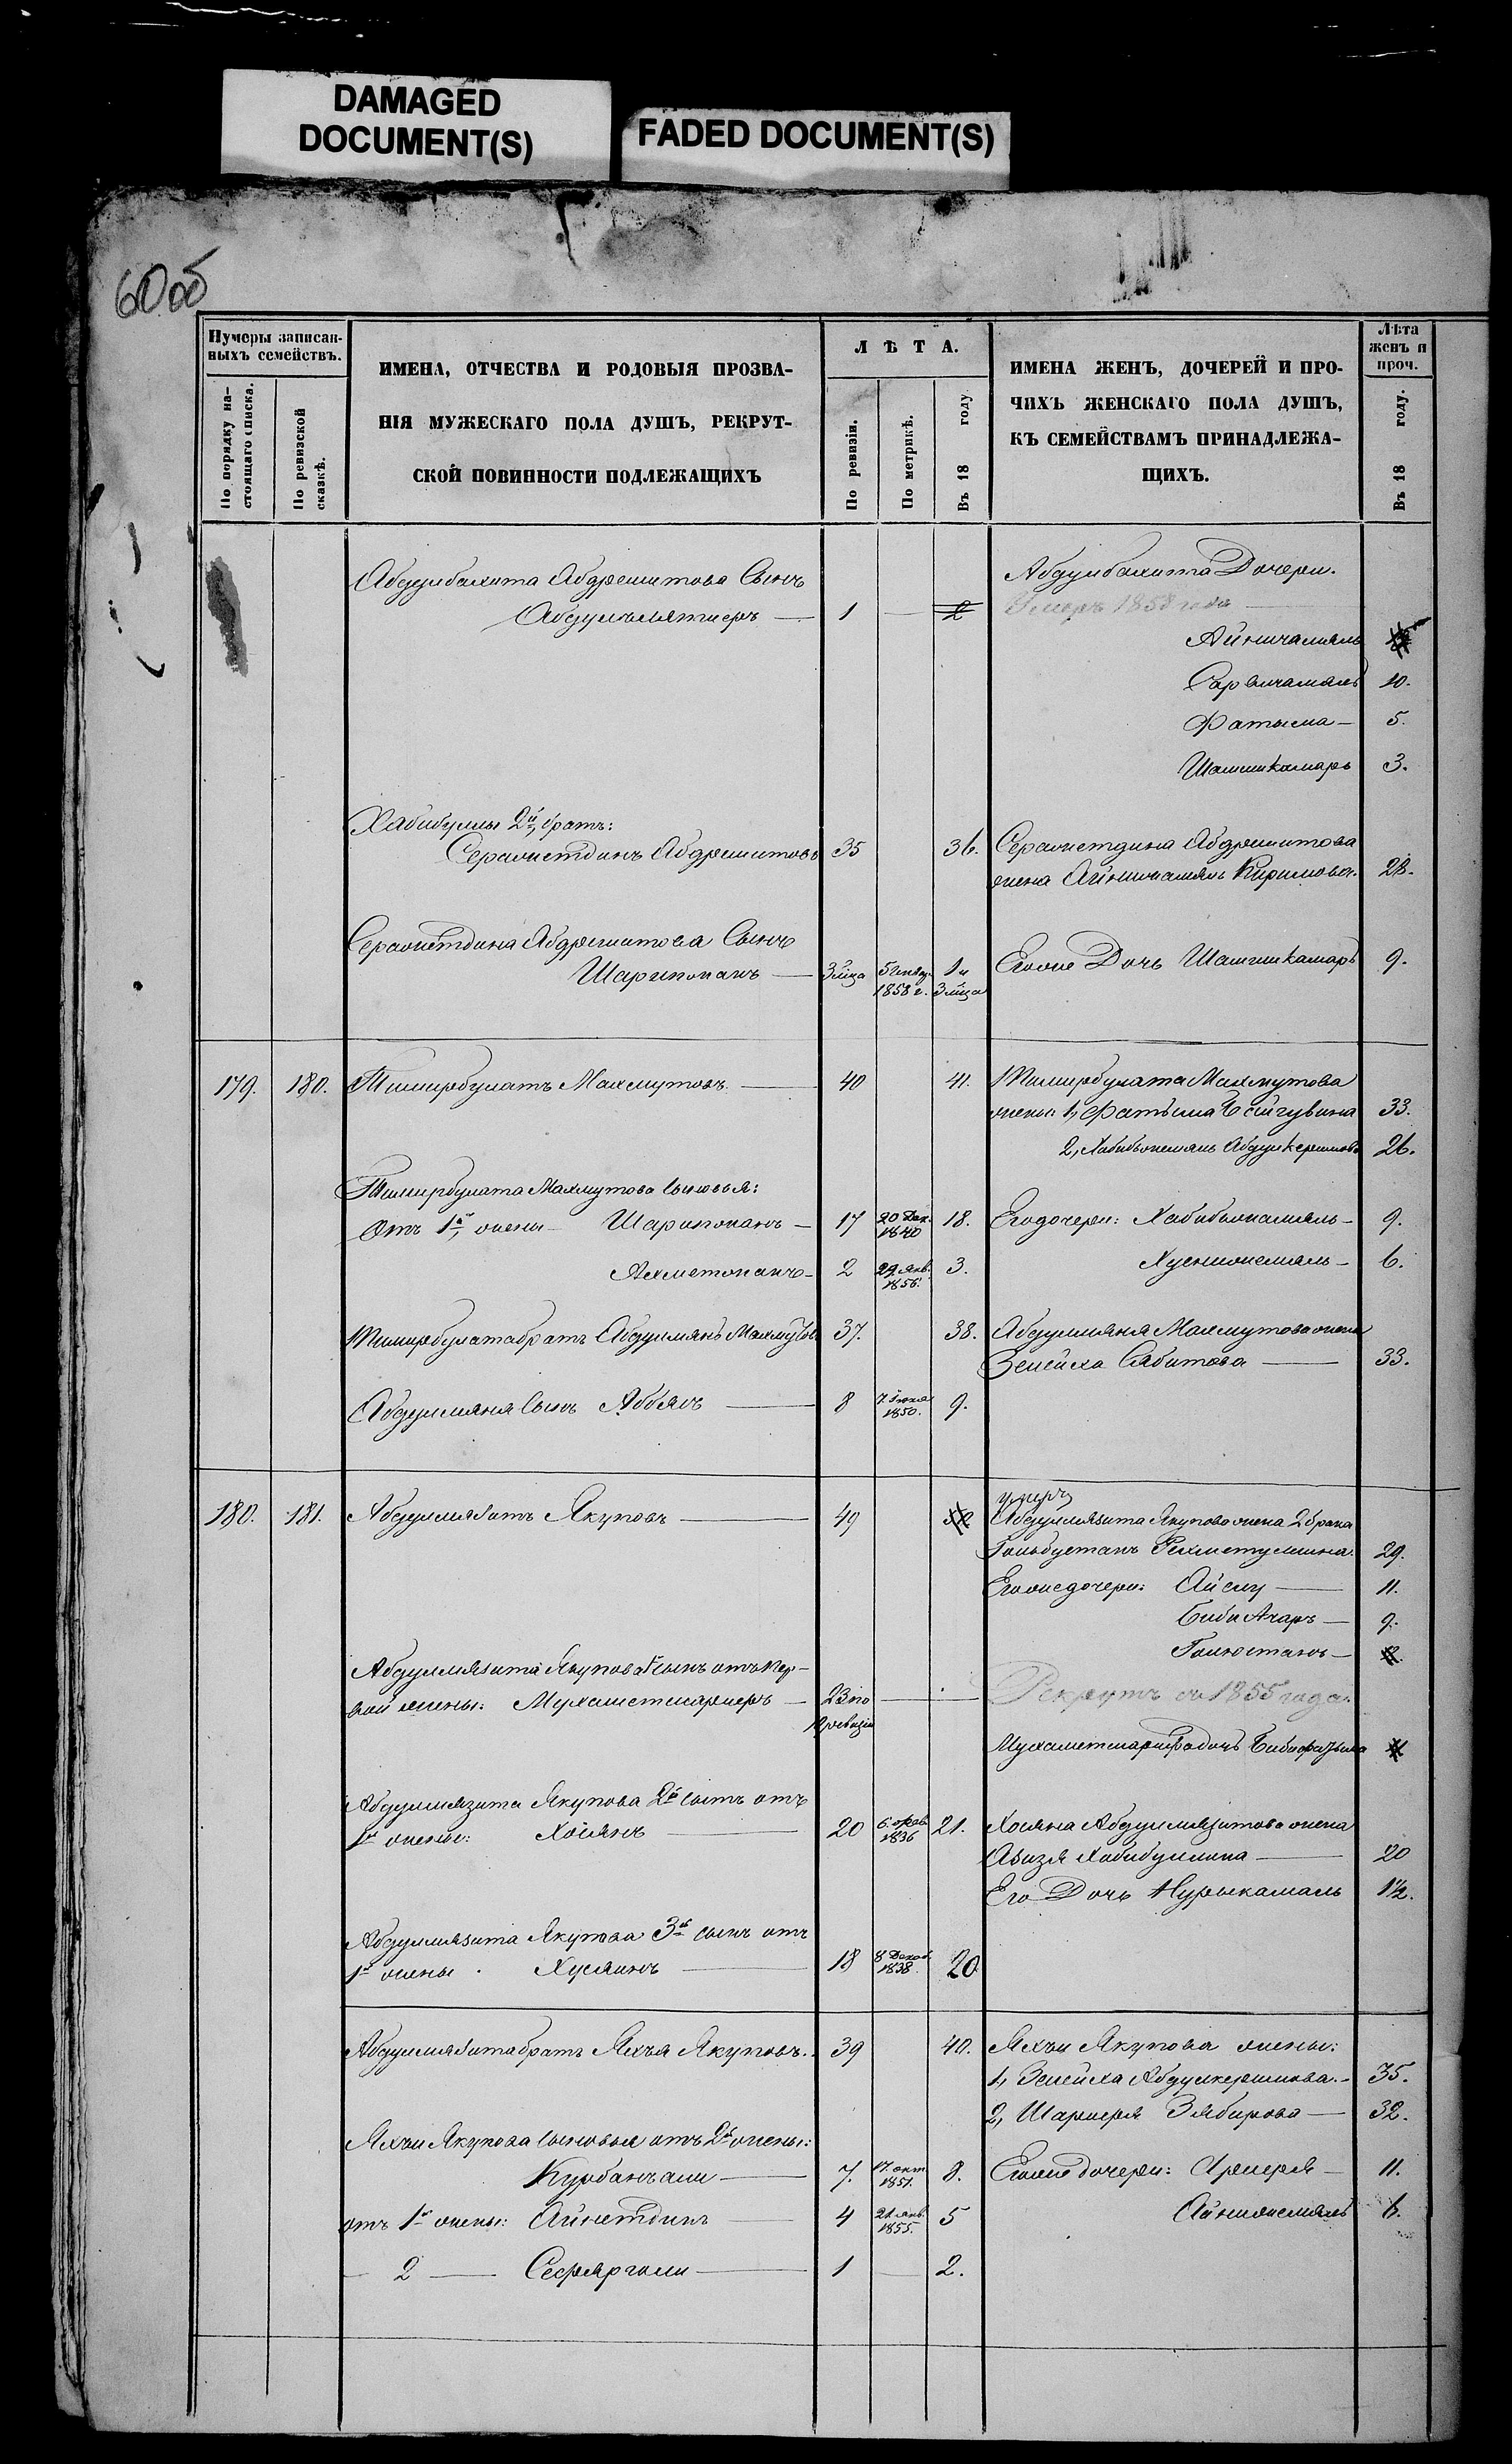 DAMAGED
DOCUMENT(S)
FADED DOCUMENT(S)
60 об
Нумеры записан-
ныхъ семействъ.
По порядку на-
стоящаго списка.
По ревизской
сказкѣ.
ИМЕНА, ОТЧЕСТВА И РОДОВЫЯ ПРОЗВА-
НІЯ МУЖЕСКАГО ПОЛА ДУШЪ, РЕКРУТ-
СКОЙ ПОВИННОСТИ ПОДЛЕЖАЩИХЪ
ЛѢТА.
По ревизіи.
По метрикѣ.
Въ 18 году.
ИМЕНА ЖЕНЪ, ДОЧЕРЕЙ И ПРО-
ЧИХЪ ЖЕНСКАГО ПОЛА ДУШЪ,
КЪ СЕМЕЙСТВАМЪ ПРИНАДЛЕЖА-
ЩИХЪ.
Лѣта
женъ и
проч.
Въ 18 году.
Абдулвахита Абдрешитова Сынъ Абдулвахита Дочери.
1 — 2 Умеръ 1858 года
Айничамаль
Сарвичамаль 10.
Фатыма — 5.
Шамшикамаръ 3.
Хабибуллы 2й братъ:
Серажетдинъ Абдрешитовъ 35 36. Серажетдина Абдрешитова
жена Айнижамаль Киримова. 28.
Серажетдина Абдрешитова Сынъ
Шарипжанъ — 3 мца 5 Генвр. 1858 г. 1 и 3 мца Егоже Дочь Шамшикамаръ 9.
179. 180. Тимирбулатъ Махмутовъ — 40 41. Тимирбулата Махмутова
жены: 1, Фатыма 33.
2, Хабибьжемаль Абдулкеримова 26.
Тимирбулата Махмутова сыновья:
Отъ 1й жены — Шарипжанъ — 17 20 Дек. 1840 18. Его дочери: Хабибьжамаль — 9.
Ахметжанъ — 2 29 Янв. 1856. 3. Хуснижемаль — 6.
Тимирбулата братъ Абдулмянъ Махмутовъ 37. 38. Абдулмяня Махмутова жена
Зелейха Сабитова — 33.
Абдулмяня Сынъ Аббясъ — 8 7 Іюля 1850. 9.
180. 181. Абдулмязитъ Якуповъ — 49 умеръ
Абдулмязита Якупова жена 2 брака
Гюльбустанъ Рехметуллина. 29.
Егоже дочери: Айслу — 11.
Биби Ачаръ — 9.
Гюлюстанъ —
Абдулмязита Якупова Сынъ отъ пер-
вой жены: Мухаметшарифъ — 23 по ревизіи — Рекрутъ съ 1855 года.
Мухаметшарифа дочь Бибифатыма
Абдулмязита Якупова 2й сынъ отъ
1й жены: Хосянъ — 20 6 фев. 1836 21. Хосяна Абдулмязитова жена
Авизя Хабибуллина — 20
Его Дочь Нурыкамаль 1½.
Абдулмязита Якупова 3й сынъ отъ
1й жены Хусяинъ — 18 8 Декаб. 1838. 20
Абдулмязита братъ Яхъя Якуповъ. 39 40. Яхъи Якупова жены:
1, Зелейха Абдулкеримова. — 35.
2, Шарифя Зябирова — 32.
Яхъи Якупова сыновья отъ 2й жены:
Курбанъали — 7. 17. окт. 1851. 8. Егоже дочери: — 11.
отъ 1й жены: Айнетдинъ — 4 21 Янв. 1855. 5 Айнижемаль 6.
— 2 — Сефяргали — 1 — 2.